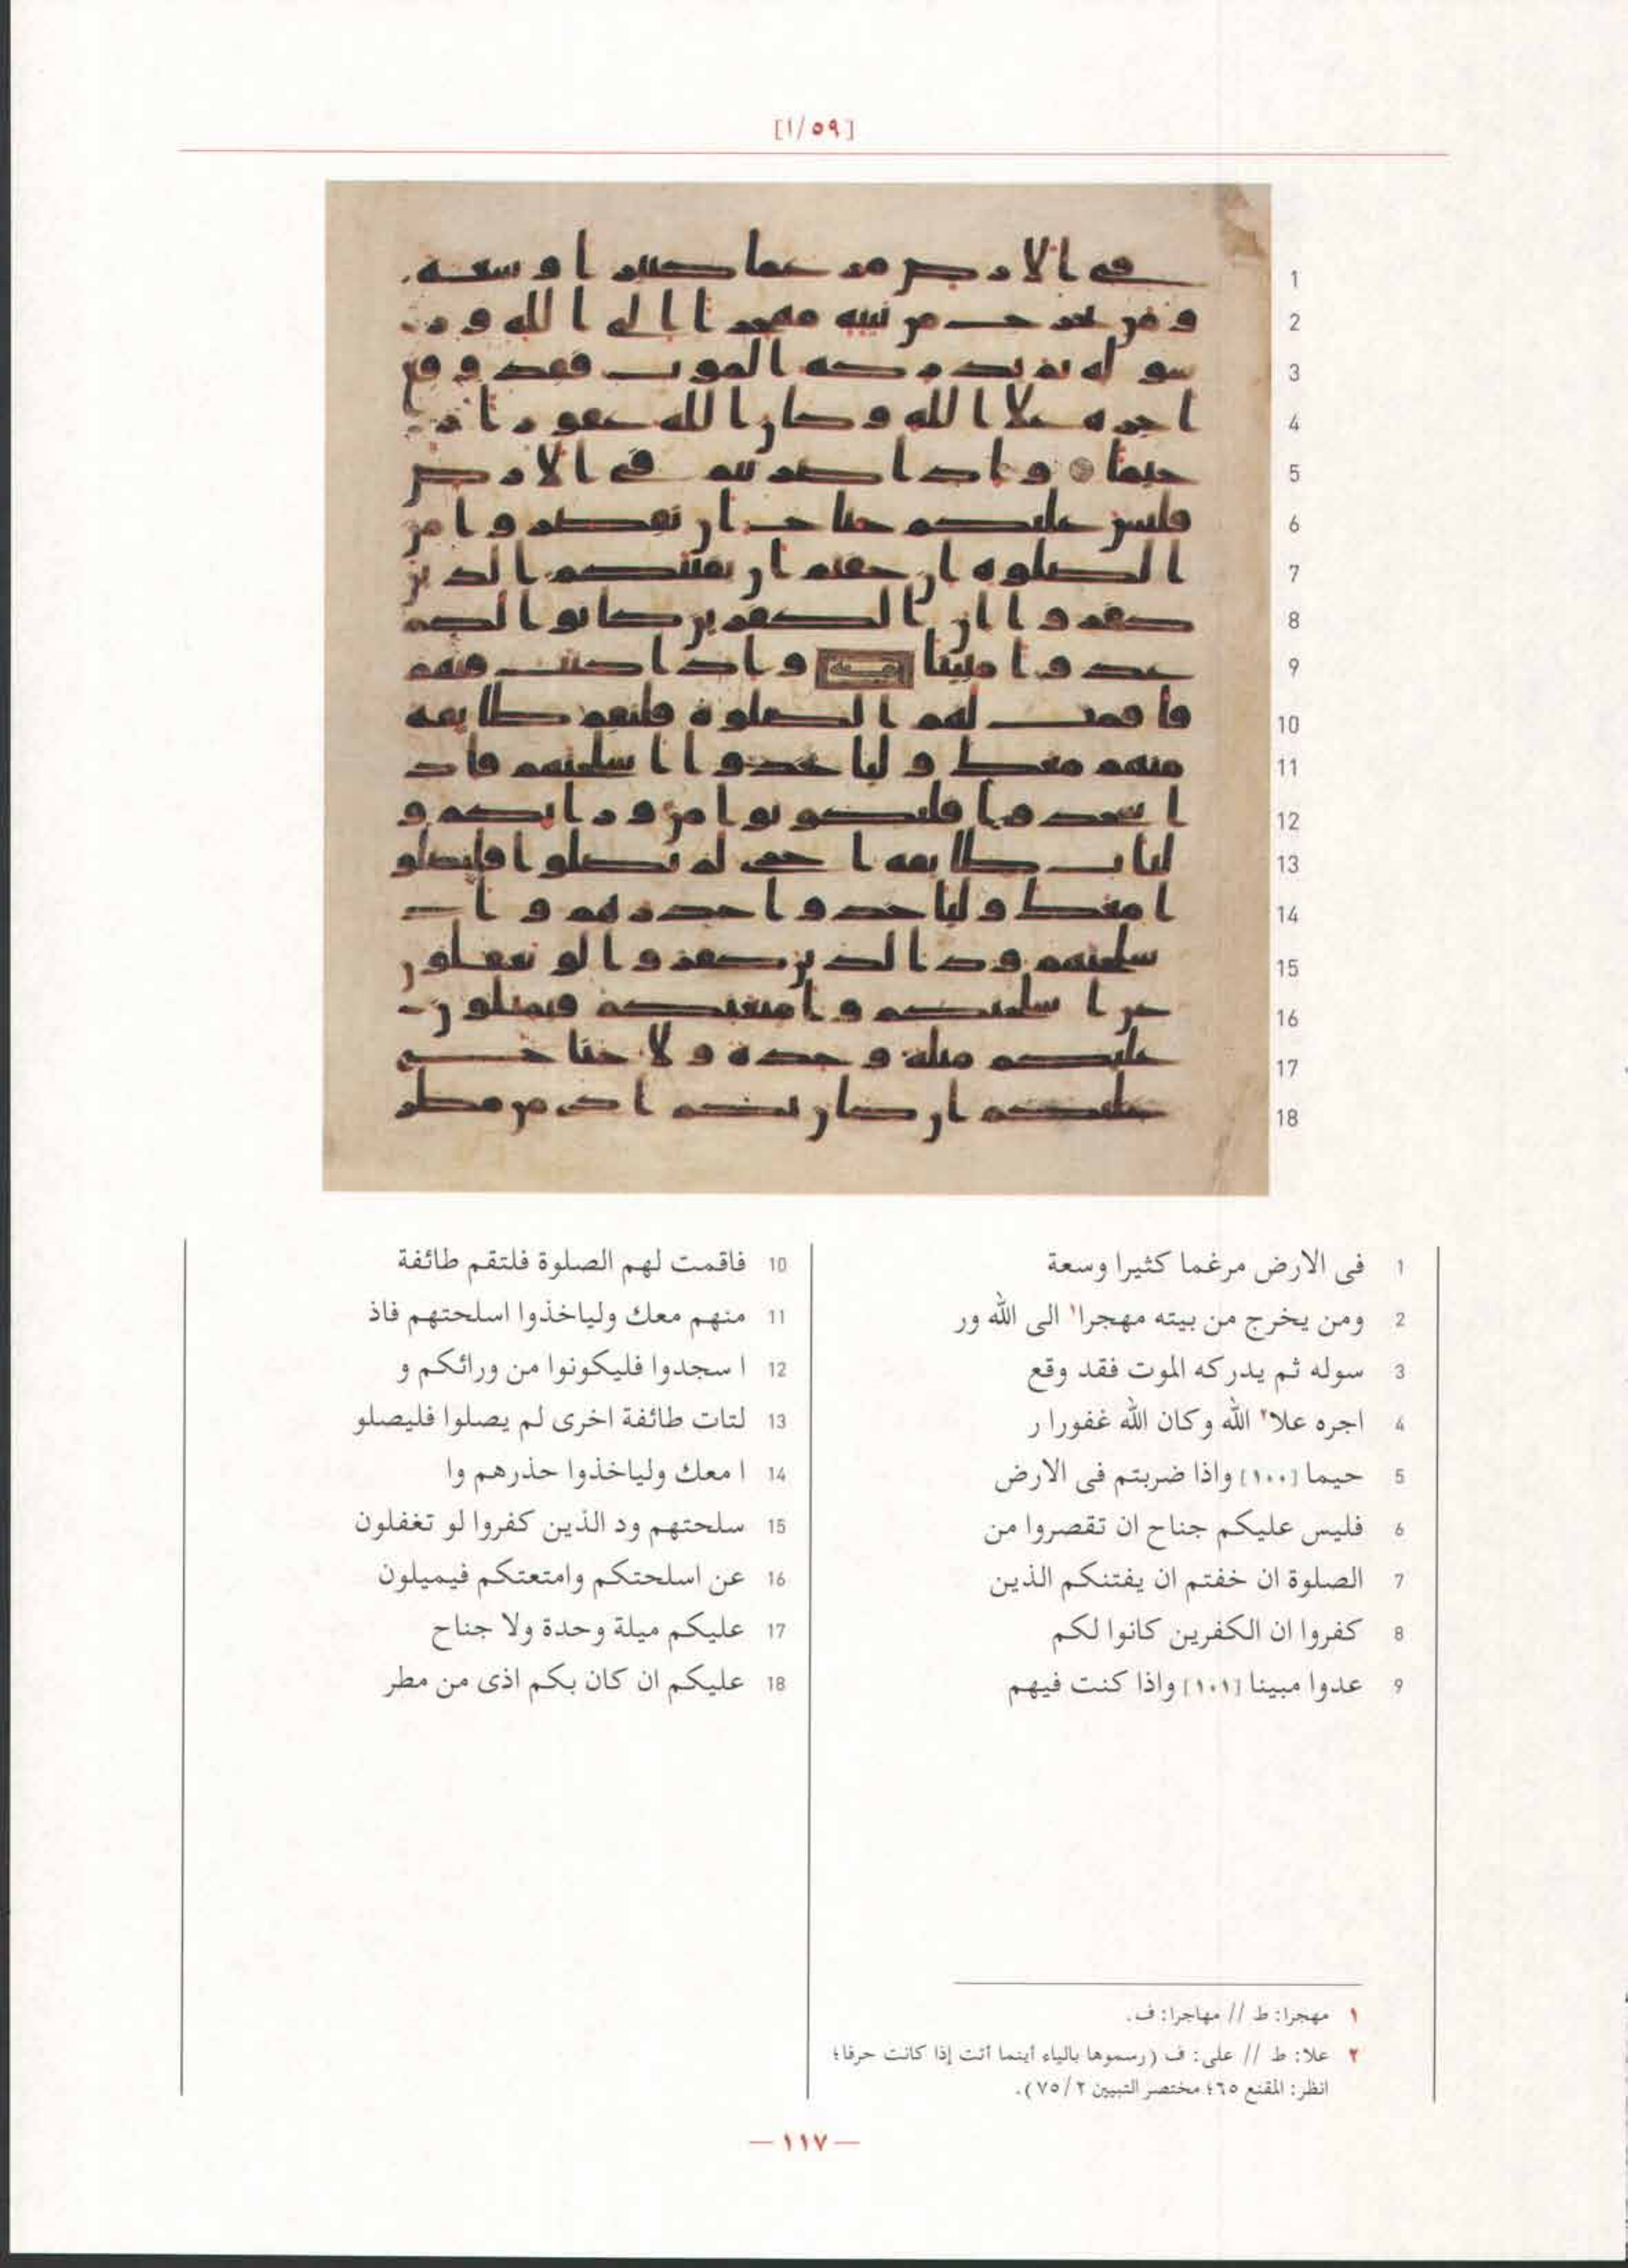 [١/٥٩]
1 فى الارض مرغما كثيرا وسعة
2 ومن يخرج من بيته مهجرا١ الى الله ور
3 سوله ثم يدركه الموت فقد وقع
4 اجره علا٢ الله وكان الله غفورا ر
5 حيما [١٠٠] واذا ضربتم فى الارض
6 فليس عليكم جناح ان تقصروا من
7 الصلوة ان خفتم ان يفتنكم الذين
8 كفروا ان الكفرين كانوا لكم
9 عدوا مبينا [١٠١] واذا كنت فيهم
10 فاقمت لهم الصلوة فلتقم طائفة
11 منهم معك ولياخذوا اسلحتهم فاذ
12 ا سجدوا فليكونوا من ورائكم و
13 لتات طائفة اخرى لم يصلوا فليصلو
14 ا معك ولياخذوا حذرهم وا
15 سلحتهم ود الذين كفروا لو تغفلون
16 عن اسلحتكم وامتعتكم فيميلون
17 عليكم ميلة وحدة ولا جناح
18 عليكم ان كان بكم اذى من مطر
١ مهجرا: ط // مهاجرا: ف.
٢ علا: ط // على: ف (رسموها بالياء أينما أتت إذا كانت حرفا؛
انظر: المقنع ٦٥؛ مختصر التبيين ٢/ ٧٥).
— ١١٧ —